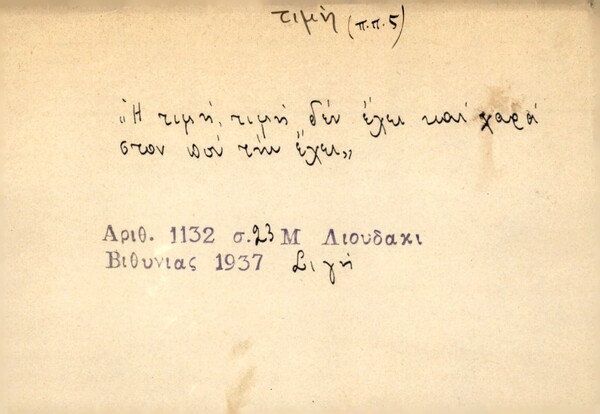 τιμή (π.π.5)
"Η τιμή, τιμή δέν έχει καί χαρά
στον πού τήν έχει„
Αριθ. 1132 σ. 23 Μ Λιουδακι
Βιθυνιας 1937 Σιγή